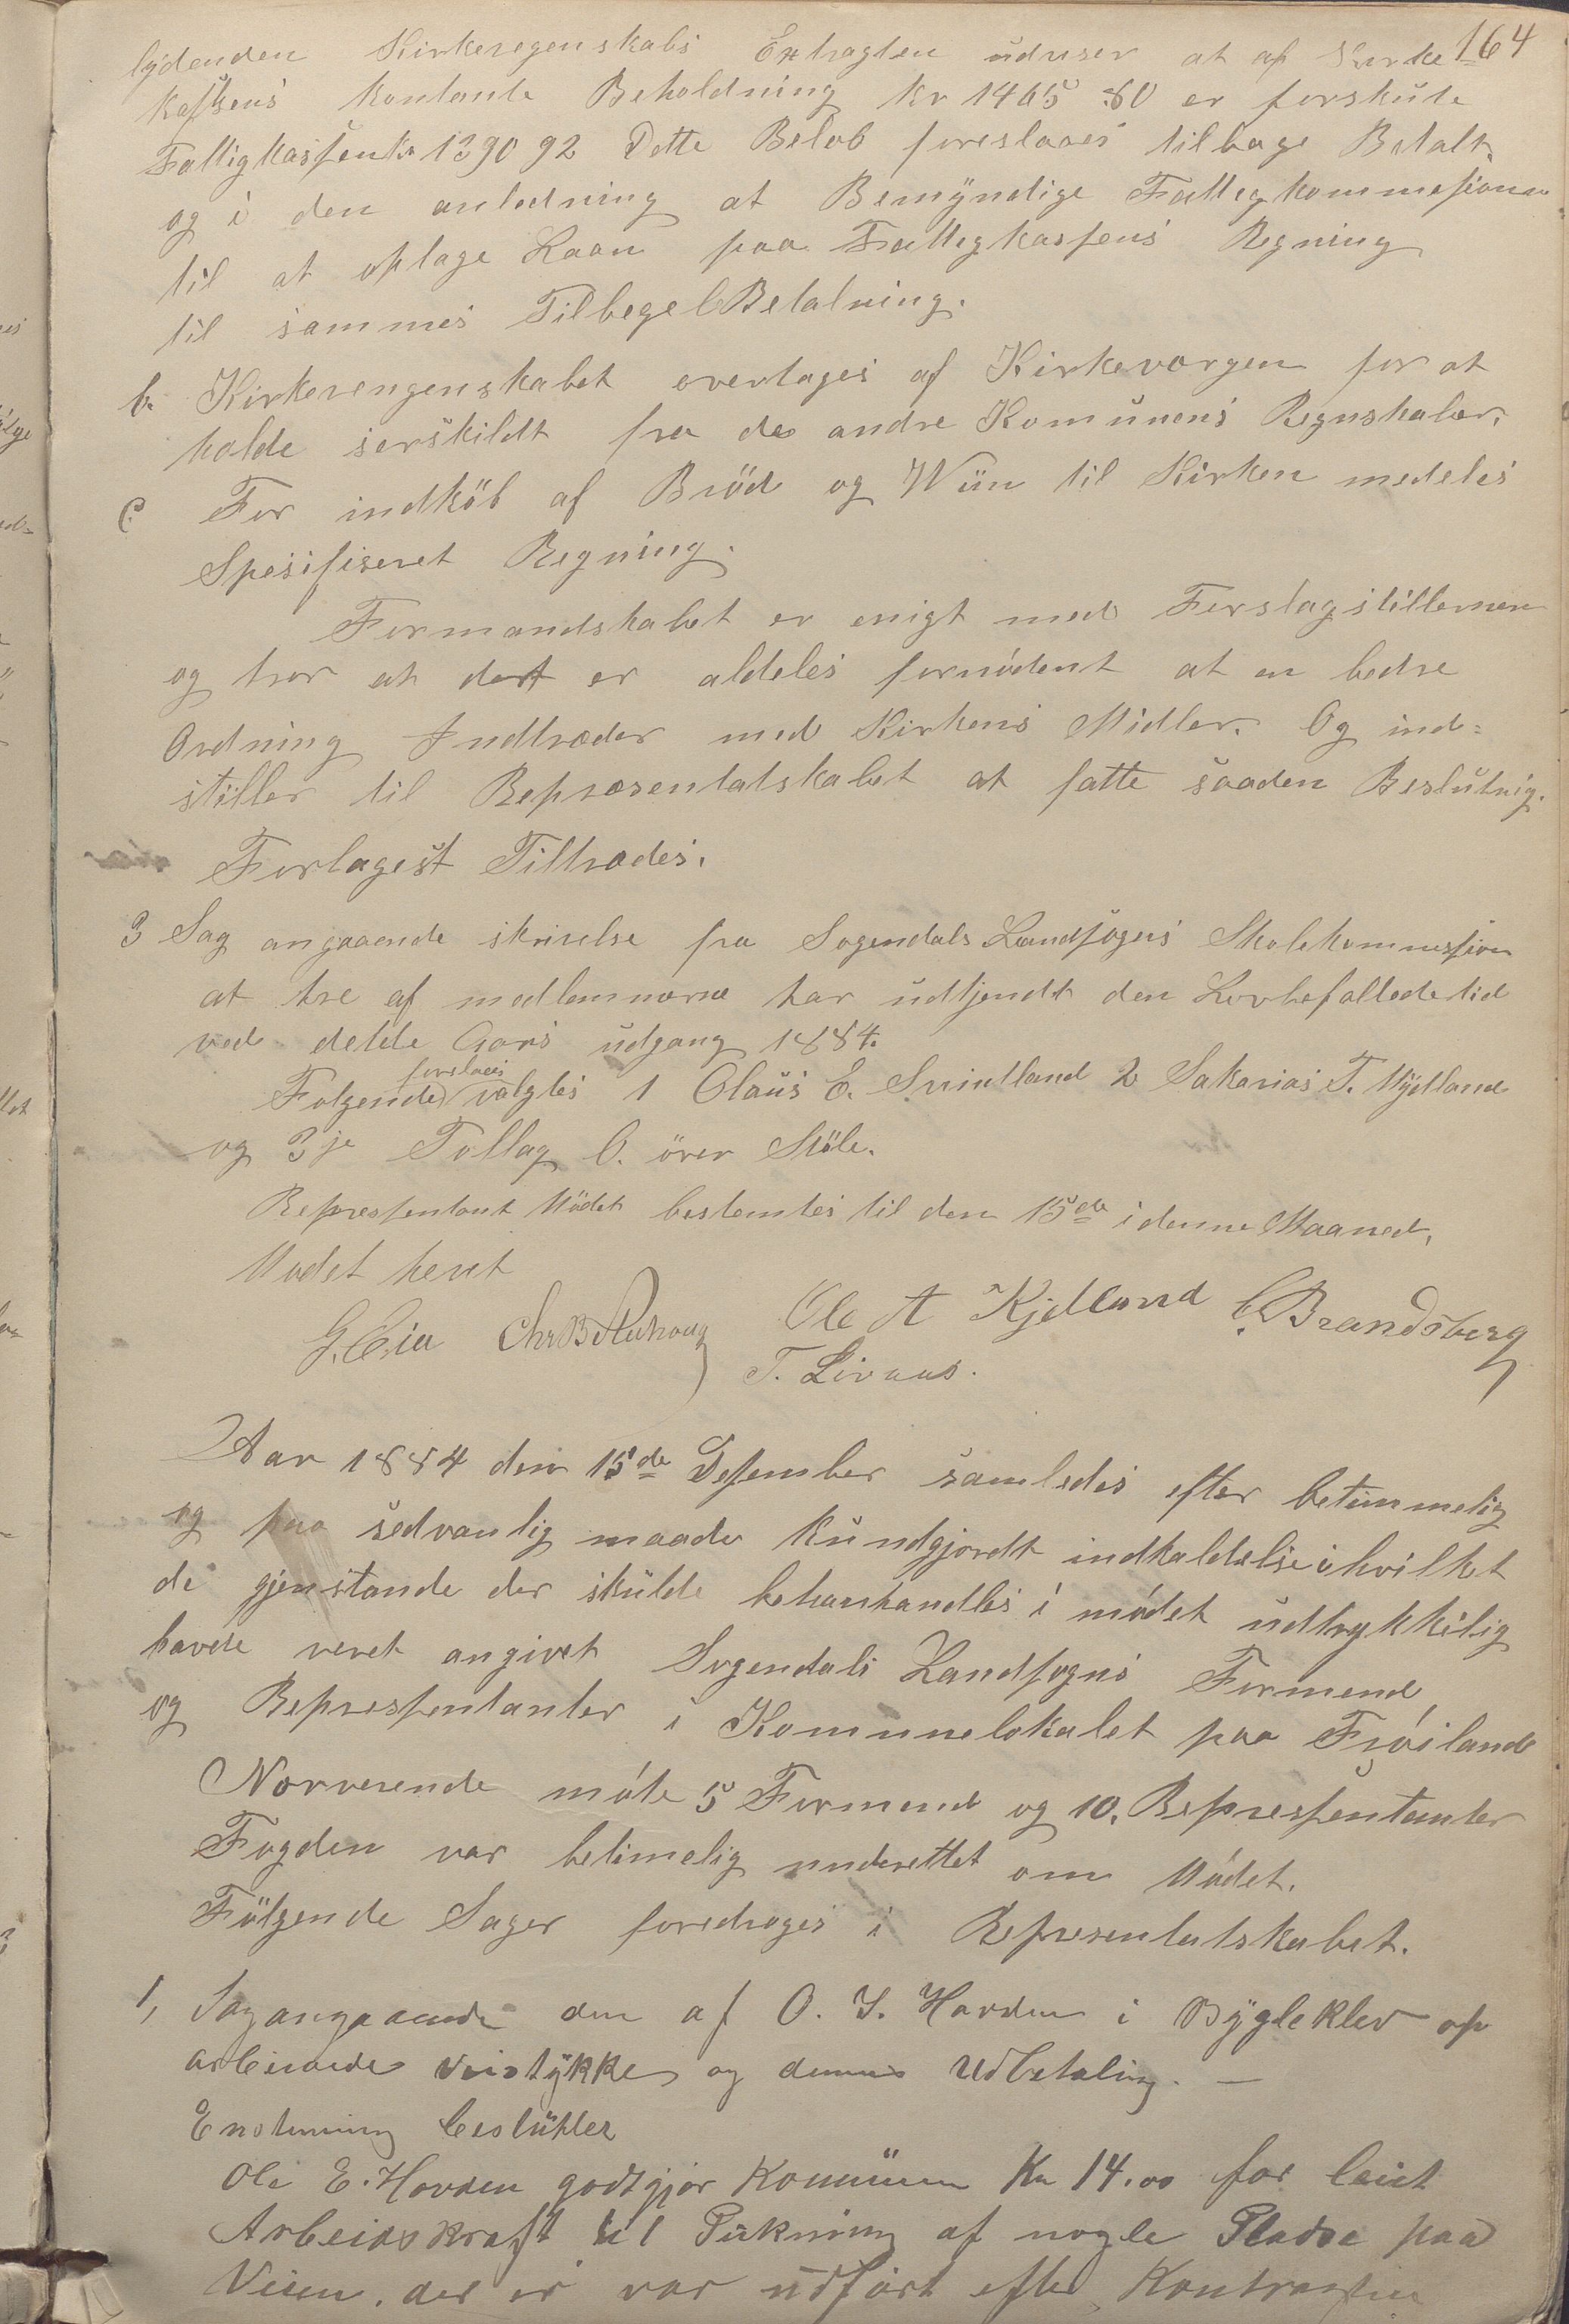 164
lydenden Kirkeregenskabs Extragten udviser at af Kirke
kassens kontante Beholdning kr 1465 80 er forskute
Fattigkassen kr 1390 92 Dette Beløb foreslaaes tilbage Betalt
og i den anledning at Bemÿndige Fattigkommesionen
til at optage Laan paa Fattegkassens Regning
til sammes Tilbegel Betalning.
b. Kirkerengenskabet overtages af Kirkevorgen for at
holde serskildt fra de andre Komunens Regnskaber.
C. For indköb af Bröd og Wiin til Kirken medeles
Spesifiseret Regning.
Formandskabet er enigt med Forslagstillernen
og tror at det er aldeles fornødent at en bedre
Ordning Indtræder med Kirkens Midler. Og ind=
stiller til Repræsentatskabet at fatte saaden Beslutnig.
Forlagest Tiltrædes.
3 Sag angaaende skrivelse fra Sogendals Landsogns Skolekommession
at tre af medlemmerne har udtjendt den Lovbefallede tid
ved dette Aars udgang 1884.
foreslaaes
Folgende valgtes 1 Olaus E. Svintland 2 Sakarias T. Mydland
og 3je Tollag O. över Stöle.
Represientant Mödet bestemtes til den 15de i denne Maaned,
Mødet hevet
G. Eia Chr B Aarhoug Ole A Kjelland C. Brandsberg
T. Livaas.
Aar 1884 den 15de Desember samledes efter betimmelig
og paa sedvanlig maade kundgjordt indkaldelse i hvilket
de gjenstande der skulde behanhandles i mødet udtrykkelig
havde veret angivet Sogendals Landsogns Formend
og Representanter i Kommunelokalet paa Frøiland
Norverende møte 5 Formend og 10. Representanter
Fogden var betimelig underettet om Mødet.
Fölgende Sager foredroges i Representatskabet.
1, Sag angaaende den af O. E. Hovden i Bygleklev op
arbeirde Veistykke og dennes Udbetaling. —
Enstemmig besluttes
Ole E. Hovden godtgjør Kommunen Kr 14.00 for leiet
Arbeidskraft til Pukning af nogle Pladse paa
Veien, der ei var udført efter Kontrakten